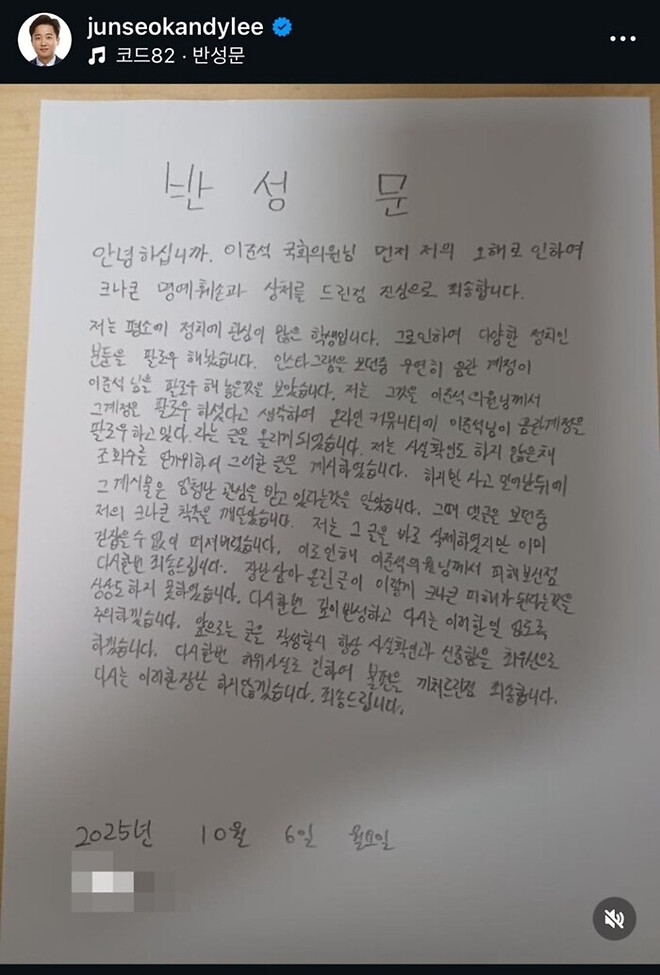 junseokandylee
코드82 · 반성문
반 성 문
안녕하십니까. 이준석 국회의원님 먼저 저의 오해로 인하여
크나큰 명예훼손과 상처를 드린점 진심으로 죄송합니다.
저는 평소에 정치에 관심이 많은 학생입니다. 그로인하여 다양한 정치인
분들을 팔로우 해놨습니다. 인스타그램을 보던중 우연히 음란 계정이
이준석 님을 팔로우 해 놓은것을 보았습니다. 저는 그것을 이준석 의원님께서
그계정은 팔로우 하셨다고 생각하여 온라인 커뮤니티에 이준석님이 음란계정을
팔로우하고 있다. 라는 글을 올리게 되었습니다. 저는 사실확인도 하지 않은채
조회수를 얻기위하여 그러한 글을 게시하였습니다. 하지만 사고 일어난뒤에
그 게시물은 엄청난 관심을 받고 있다는것을 알았습니다. 그때 댓글을 보던중
저의 크나큰 착각을 깨달았습니다. 저는 그 글을 바로 삭제하였지만 이미
걷잡을수 없이 퍼져버렸습니다. 이로인해 이준석의원님께서 피해보신점
다시한번 죄송드립니다. 장난삼아 올린글이 이렇게 크나큰 피해가 된다는것을
상상도 하지 못하였습니다. 다시한번 깊이반성하고 다시는 이러한일 없도록
주의하겠습니다. 앞으로는 글을 작성할시 항상 사실확인과 신중함을 최우선으로
하겠습니다. 다시한번 허위사실로 인하여 불편을 끼쳐드린점 죄송합니다.
다시는 이러한장난 하지않겠습니다. 죄송드립니다.
2025년 10월 6일 월요일